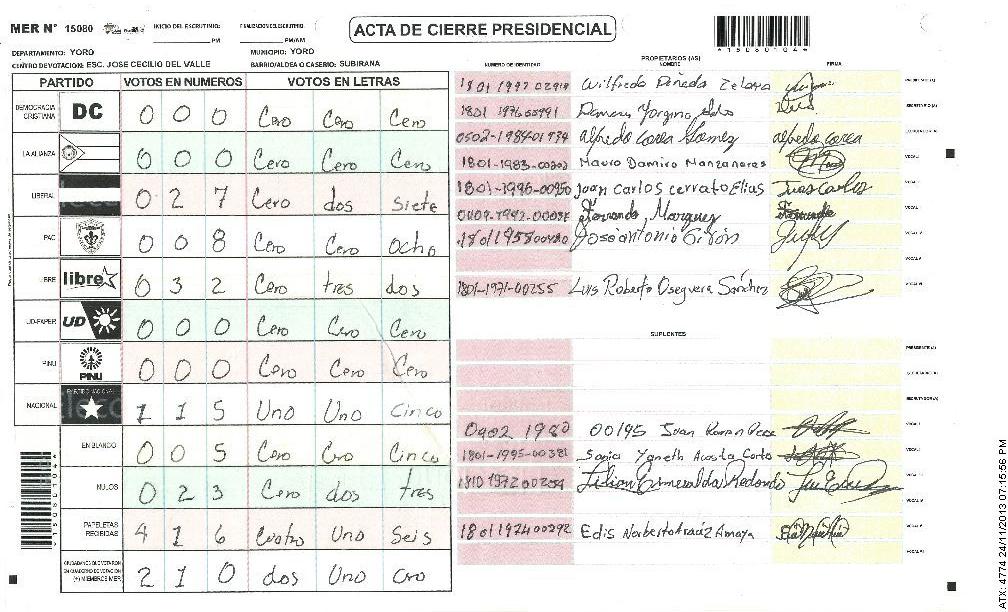 MER N° 15080 INICIO DEL ESCRUTINIO: FINALIZACION ESCRUTINIO: ACTA DE CIERRE PRESIDENCIAL
PM PM/AM
DEPARTAMENTO: YORO MUNICIPIO: YORO
CENTRO DE VOTACION: ESC. JOSE CECILIO DEL VALLE BARRIO/ALDEA O CASERIO: SUBIRANA
PARTIDO VOTOS EN NUMEROS VOTOS EN LETRAS
DEMOCRACIA CRISTIANA DC 0 0 0 Cero Cero Cero
LA ALIANZA 0 0 0 Cero Cero Cero
LIBERAL 0 2 7 Cero dos Siete
PAC 0 0 8 Cero Cero Ocho
LIBRE libre 0 3 2 Cero tres dos
UD-FAPER UD 0 0 0 Cero Cero Cero
PINU PINU 0 0 0 Cero Cero Cero
NACIONAL 1 1 5 Uno Uno Cinco
EN BLANCO 0 0 5 Cero Cero Cinco
NULOS 0 2 3 Cero dos tres
PAPELETAS RECIBIDAS 4 1 6 Cuatro Uno Seis
CIUDADANOS QUE VOTARON EN CUADERNO DE VOTACION (+) MIEMBROS MER 2 1 0 dos Uno Cero
PROPIETARIOS (AS)
NUMERO DE IDENTIDAD NOMBRE FIRMA
Wilfredo Pineda Zelaya
alfredo corea Gomez alfredo corea
1801-1983-00202 Mauro Damiro Manzanares
1801-1996-00950 Joan Carlos cerrato Elias Juan Carlos
Fernando Marquez
José antonio Girón
1801-1971-00255 Luis Roberto Oseguera Sánchez
SUPLENTES
0902 1980 00195 Juan Ramon
1801-1995-00381 Sonia Yaneth Acosta
1810 1972 00254 Lilian Esmeralda Redondo
1801 1974 00292 Edis Norberto Araúz Amaya
4150801044
ATX: 4774 24/11/2013 07:15:56 PM